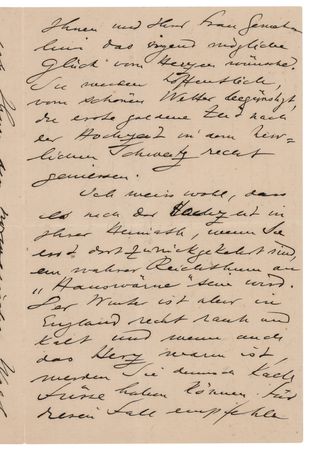 Ihnen und Ihrer Frau Gemah-
lin das irgend mögliche
Glück vom Herzen wünsche.
Sie werden hoffentlich,
vom schönen Wetter begünstigt,
die erste goldene Zeit nach
der Hochzeit in dem herr=
lichen Schweiz recht
geniessen.
Ich weiss wohl, dass
es nach der Hochzeit in
Ihrer Heimath, wenn Sie
erst dort zurückgekehrt sind,
ein wahrer Reichthum an
"Hauswärme" sein wird.
Der Winter ist aber in
England recht rauh und
kalt und wenn auch
das Herz warm ist,
werden Sie dennoch kalte
Füsse haben können. Für
diesen Fall empfehle